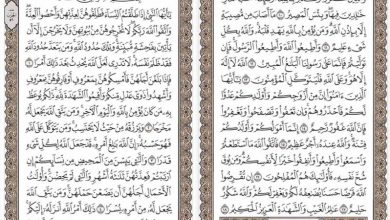 خَٰلِدِينَ فِيهَا وَبِئْسَ ٱلْمَصِيرُ ۝ مَآ أَصَابَ مِن مُّصِيبَةٍ
إِلَّا بِإِذْنِ ٱللَّهِ وَمَن يُؤْمِنۢ بِٱللَّهِ يَهْدِ قَلْبَهُۥ وَٱللَّهُ بِكُلِّ
شَىْءٍ عَلِيمٌ ۝ وَأَطِيعُوا۟ ٱللَّهَ وَأَطِيعُوا۟ ٱلرَّسُولَ فَإِن
تَوَلَّيْتُمْ فَإِنَّمَا عَلَىٰ رَسُولِنَا ٱلْبَلَٰغُ ٱلْمُبِينُ ۝ ٱللَّهُ لَآ إِلَٰهَ
إِلَّا هُوَ وَعَلَى ٱللَّهِ فَلْيَتَوَكَّلِ ٱلْمُؤْمِنُونَ ۝ يَٰٓأَيُّهَا ٱلَّذِينَ
ءَامَنُوٓا۟ إِنَّ مِنْ أَزْوَٰجِكُمْ وَأَوْلَٰدِكُمْ عَدُوًّا
لَّكُمْ فَٱحْذَرُوهُمْ وَإِن تَعْفُوا۟ وَتَصْفَحُوا۟ وَتَغْفِرُوا۟
فَإِنَّ ٱللَّهَ غَفُورٌ رَّحِيمٌ ۝ إِنَّمَآ أَمْوَٰلُكُمْ وَأَوْلَٰدُكُمْ
فِتْنَةٌ وَٱللَّهُ عِندَهُۥٓ أَجْرٌ عَظِيمٌ ۝ فَٱتَّقُوا۟ ٱللَّهَ مَا ٱسْتَطَعْتُمْ
وَٱسْمَعُوا۟ وَأَطِيعُوا۟ وَأَنفِقُوا۟ خَيْرًا لِّأَنفُسِكُمْ وَمَن يُوقَ
شُحَّ نَفْسِهِۦ فَأُو۟لَٰٓئِكَ هُمُ ٱلْمُفْلِحُونَ ۝ إِن تُقْرِضُوا۟ ٱللَّهَ
قَرْضًا حَسَنًا يُضَٰعِفْهُ لَكُمْ وَيَغْفِرْ لَكُمْ وَٱللَّهُ شَكُورٌ
حَلِيمٌ ۝ عَٰلِمُ ٱلْغَيْبِ وَٱلشَّهَٰدَةِ ٱلْعَزِيزُ ٱلْحَكِيمُ ۝
يَٰٓأَيُّهَا ٱلنَّبِىُّ إِذَا طَلَّقْتُمُ ٱلنِّسَآءَ فَطَلِّقُوهُنَّ لِعِدَّتِهِنَّ وَأَحْصُوا۟ ٱلْعِدَّةَ
وَٱتَّقُوا۟ ٱللَّهَ رَبَّكُمْ لَا تُخْرِجُوهُنَّ مِنۢ بُيُوتِهِنَّ وَلَا يَخْرُجْنَ إِلَّآ أَن
يَأْتِينَ بِفَٰحِشَةٍ مُّبَيِّنَةٍ وَتِلْكَ حُدُودُ ٱللَّهِ وَمَن يَتَعَدَّ حُدُودَ ٱللَّهِ
فَقَدْ ظَلَمَ نَفْسَهُۥ لَا تَدْرِى لَعَلَّ ٱللَّهَ يُحْدِثُ بَعْدَ ذَٰلِكَ أَمْرًا ۝
فَإِذَا بَلَغْنَ أَجَلَهُنَّ فَأَمْسِكُوهُنَّ بِمَعْرُوفٍ أَوْ فَارِقُوهُنَّ بِمَعْرُوفٍ
وَأَشْهِدُوا۟ ذَوَىْ عَدْلٍ مِّنكُمْ وَأَقِيمُوا۟ ٱلشَّهَٰدَةَ لِلَّهِ ذَٰلِكُمْ يُوعَظُ
بِهِۦ مَن كَانَ يُؤْمِنُ بِٱللَّهِ وَٱلْيَوْمِ ٱلْءَاخِرِ وَمَن يَتَّقِ ٱللَّهَ يَجْعَل لَّهُۥ
مَخْرَجًا ۝ وَيَرْزُقْهُ مِنْ حَيْثُ لَا يَحْتَسِبُ وَمَن يَتَوَكَّلْ عَلَى ٱللَّهِ
فَهُوَ حَسْبُهُۥٓ إِنَّ ٱللَّهَ بَٰلِغُ أَمْرِهِۦ قَدْ جَعَلَ ٱللَّهُ لِكُلِّ شَىْءٍ
قَدْرًا ۝ وَٱلَّٰٓـِٔى يَئِسْنَ مِنَ ٱلْمَحِيضِ مِن نِّسَآئِكُمْ إِنِ
ٱرْتَبْتُمْ فَعِدَّتُهُنَّ ثَلَٰثَةُ أَشْهُرٍ وَٱلَّٰٓـِٔى لَمْ يَحِضْنَ وَأُو۟لَٰتُ
ٱلْأَحْمَالِ أَجَلُهُنَّ أَن يَضَعْنَ حَمْلَهُنَّ وَمَن يَتَّقِ ٱللَّهَ
يَجْعَل لَّهُۥ مِنْ أَمْرِهِۦ يُسْرًا ۝ ذَٰلِكَ أَمْرُ ٱللَّهِ أَنزَلَهُۥٓ إِلَيْكُمْ